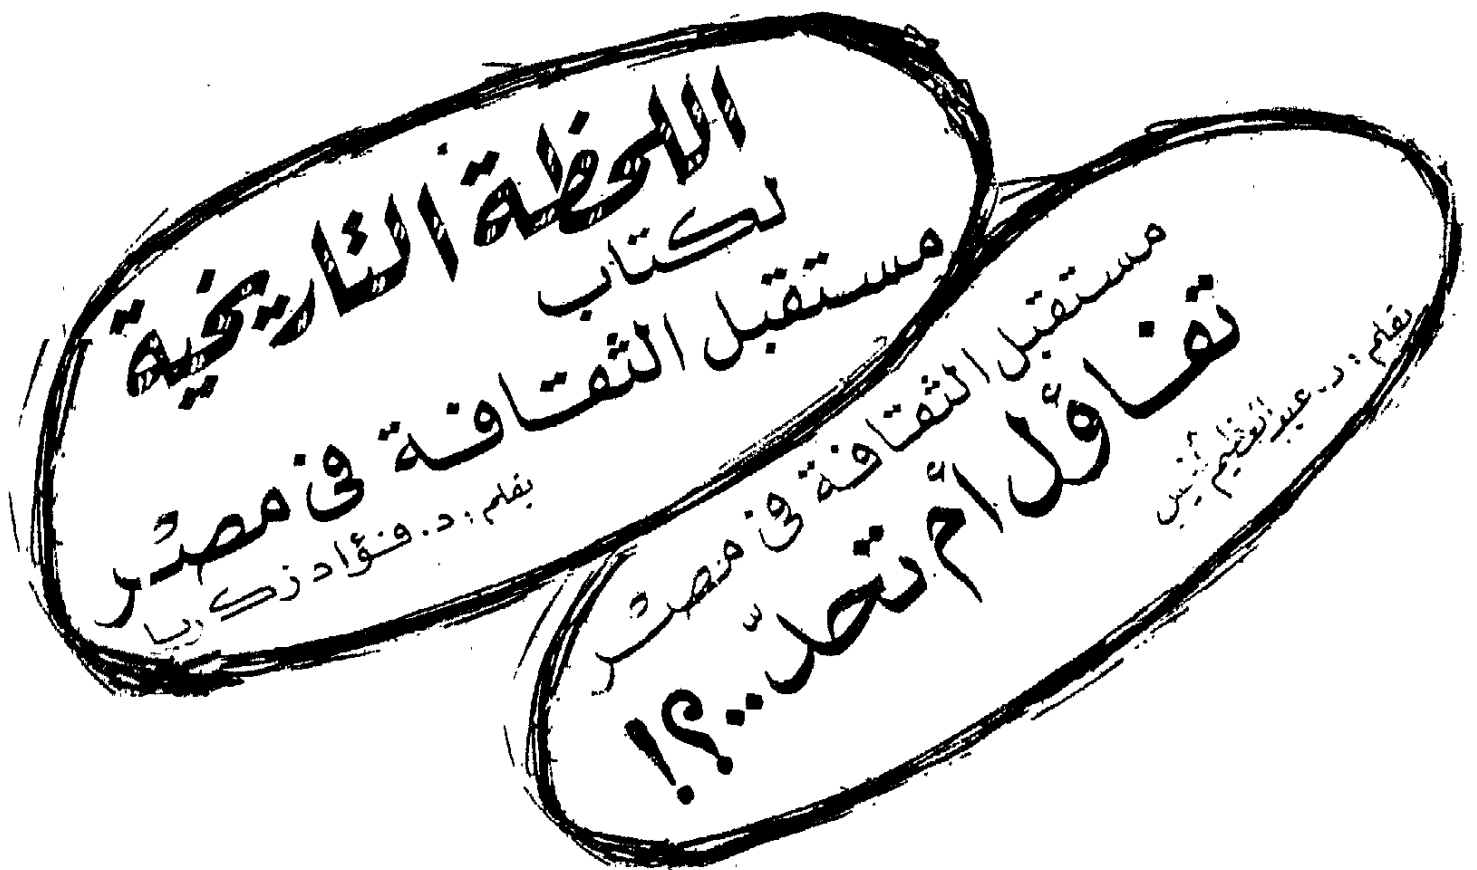 اللحظة التاريخية
لكتاب
مستقبل الثقافة فى مصر
بقلم : د. فؤاد زكريا
مستقبل الثقافة فى مصر
تفاؤل أم تحدّ..؟!
بقلم : د. عبد العظيم أنيس